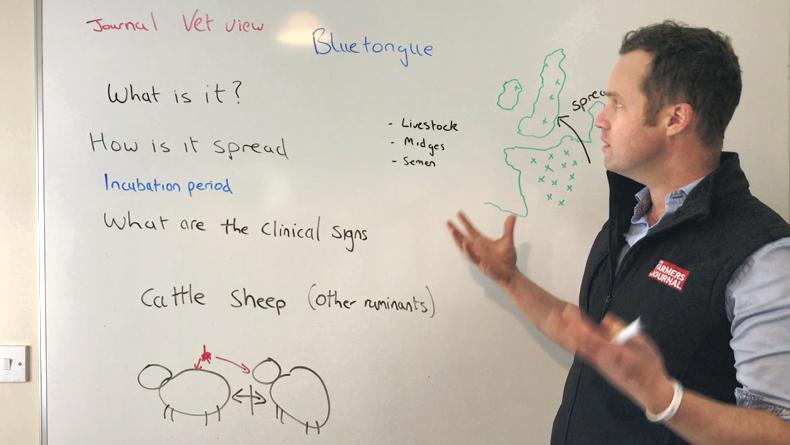 Journal Vet view
Bluetongue
What is it?
How is it spread
Incubation period
What are the clinical signs
Cattle Sheep (other ruminants)
- Livestock
- Midges
- Semen
FARMERS
JOURNAL